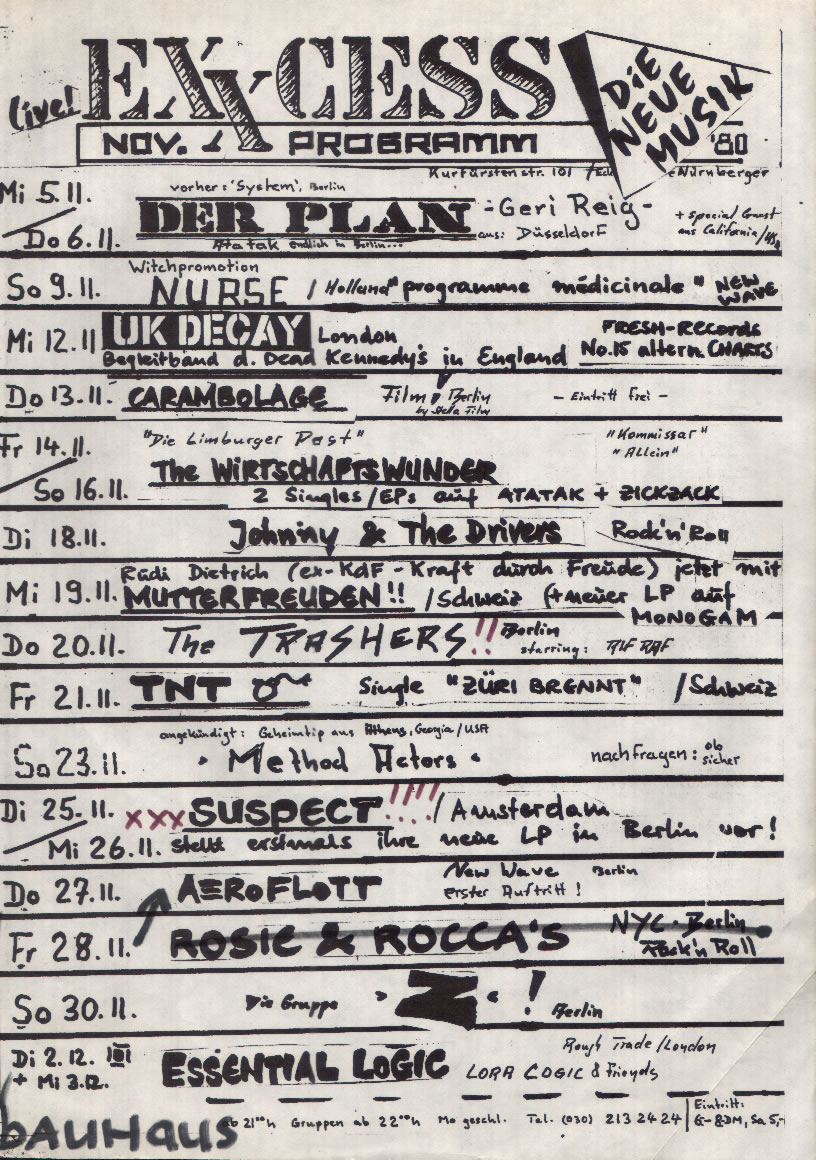 live!
EXXCESS
DIE NEUE MUSIK
NOV. PROGRAMM '80
Kurfürstenstr. 101 Nürnberger
Mi 5.11.
vorher: 'System', Berlin
DER PLAN - Geri Reig -
+ special Guest
Do 6.11.
Atatak endlich in Berlin...
aus: Düsseldorf
aus California/USA
Witchpromotion
So 9.11. NURSE / Holland "programme médicinale" NEW WAVE
Mi 12.11 UK DECAY London
FRESH-RECORDS
Begleitband d. Dead Kennedy's in England
No.15 altern. CHARTS
Do 13.11. CARAMBOLAGE Film, Berlin - Eintritt frei -
by Stella Film
Fr 14.11. "Die Limburger Pest"
"Kommissar"
"Allein"
The WIRTSCHAFTSWUNDER
So 16.11. 2 Singles/EPs auf ATATAK + ZICKZACK
Di 18.11. Johnny & The Drivers Rock'n'Roll
Rüdi Dietrich (ex-KdF-Kraft durch Freude) jetzt mit
Mi 19.11. MUTTERFREUDEN!! /Schweiz (+neuer LP auf
MONOGAM
Do 20.11. The TRASHERS!! Berlin
starring: RIF RAF
Fr 21.11. TNT Single "ZÜRI BRENNT" /Schweiz
angekündigt: Geheimtip aus Athens, Georgia/USA
So 23.11. · Method Actors · nachfragen: ob sicher
Di 25.11. xxx SUSPECT!!!! / Amsterdam
Mi 26.11. stellt erstmals ihre neue LP in Berlin vor!
Do 27.11. AEROFLOTT New Wave Berlin
erster Auftritt!
Fr 28.11. ROSIE & ROCCA'S NYC - Berlin
Rock'n Roll
So 30.11. Die Gruppe > Z < ! Berlin
Di 2.12.
+ Mi 3.12.
ESSENTIAL LOGIC
Rough Trade/London
LORA LOGIC & Friends
bAUHaus
ab 21°°h Gruppen ab 22°°h Mo geschl. Tel. (030) 213 24 24
Eintritt:
6-8DM, Sa 5,-